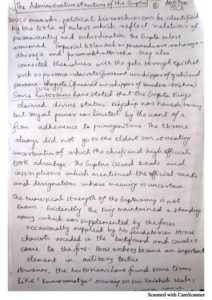 The Administrative structure of the Guptas
political hierarchies can be identified
by the title of rulers which reflect relations of
paramountcy and subordination. The Gupta rulers
assumed imperial titles such as
They also
connected themselves with the gods through epithets
such as parama-daivata (foremost worshipper of gods) and
parama-bhagavata (foremost worshipper of Vasudeva Krishna)
Some historians have stated that the Gupta kings
claimed divine status. Kingship was hereditary
but royal power was limited by the want of a
firm adherence to primogeniture. The throne
always did not go to the eldest son creating
uncertainties of which the chiefs and high officials
took advantage. The Guptas issued seals and
inscriptions which mentioned the official ranks
and designations whose meaning is uncertain.
The numerical strength of the Gupta army is not
known. Evidently the king maintained a standing
army which was supplemented by the forces
occasionally supplied by his feudatories. Horse
chariots receded in the background and cavalry
came to the fore. Horse archery became an important
element in military tactics
However, the historians have found some terms
like 'Kumaramatya' occuring on six Vaishali seals,
Scanned with CamScanner